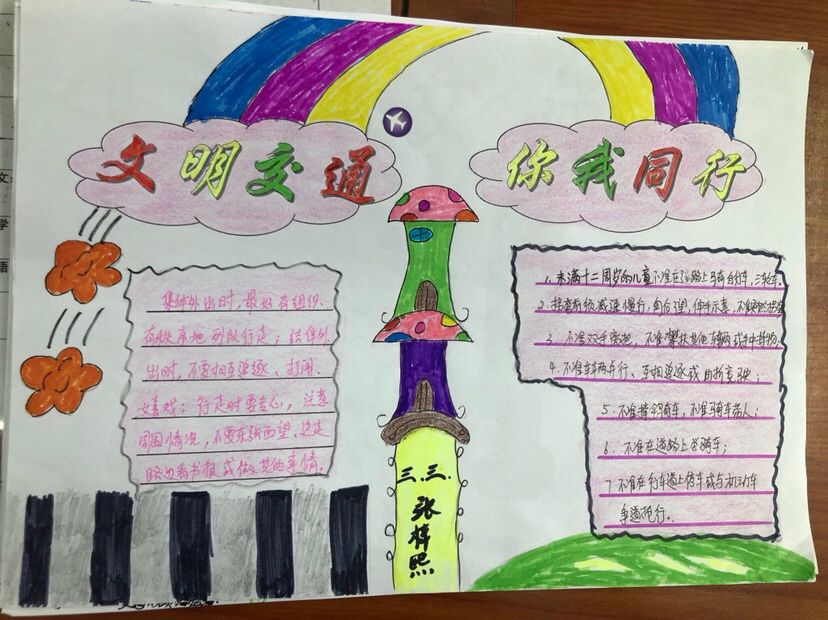 文明交通
你我同行
集体外出时,最好有组织、
有秩序地列队行走;结伴外
出时,不要相互追逐、打闹、
嬉戏;行走时要专心,注意
周围情况,不要东张西望、边走
路边看书报或做其他事情。
三.三.
张梓熙
1、未满十二周岁的儿童不准在道路上骑自行车,三轮车.
2、拐弯前须减速慢行,向后望,伸手示意,不准突然拐弯
3、不准双手离把,不准攀扶其他车辆或手中持物.
4、不准车辆并行、互相追逐或曲折竞驶;
5、不准撑伞骑车,不准骑车带人;
6、不准在道路上学骑车;
7 不准在行车道上停车或与机动车
争道抢行。
文
学
语